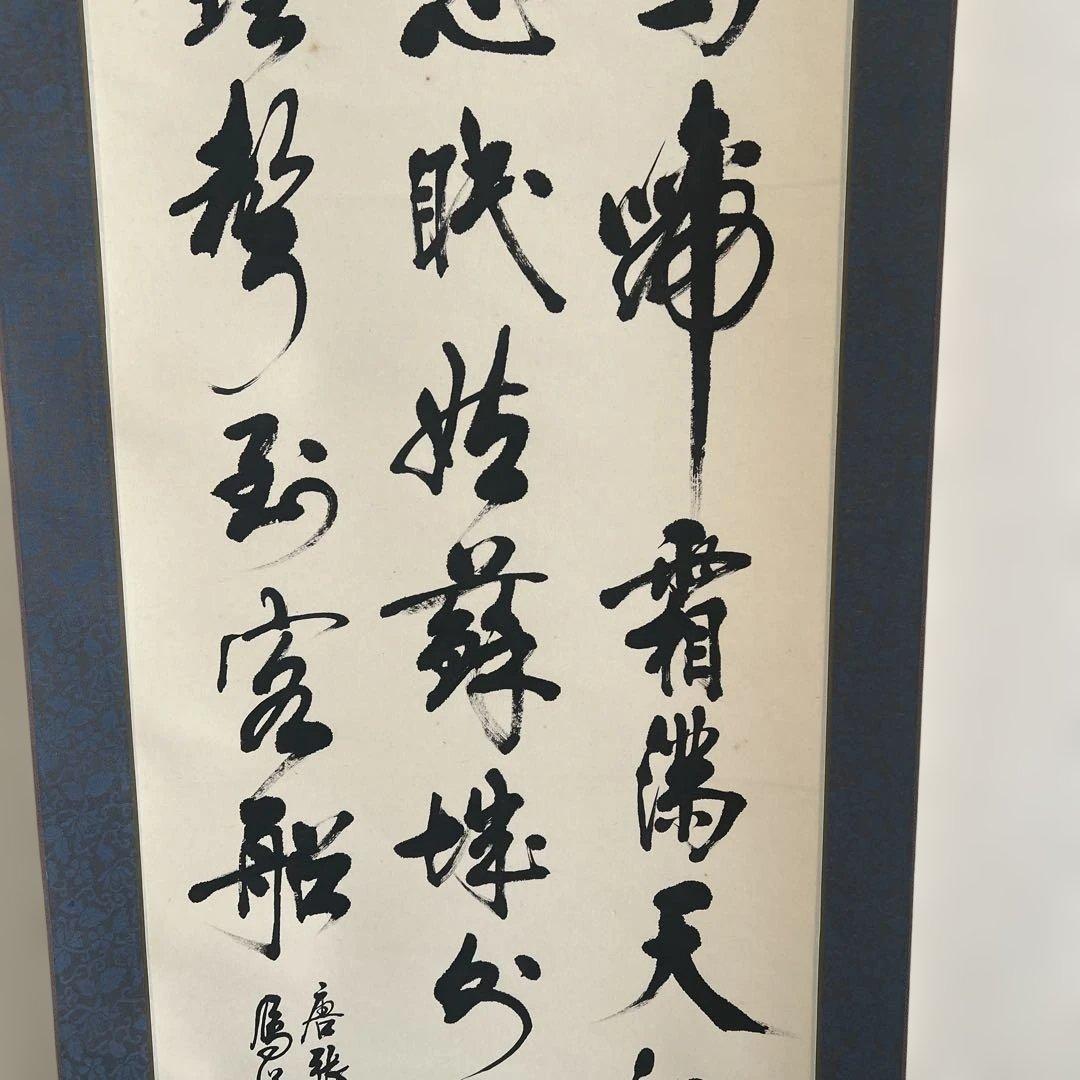 啼霜滿天
眠姑蘇城外
聲到客船
唐張